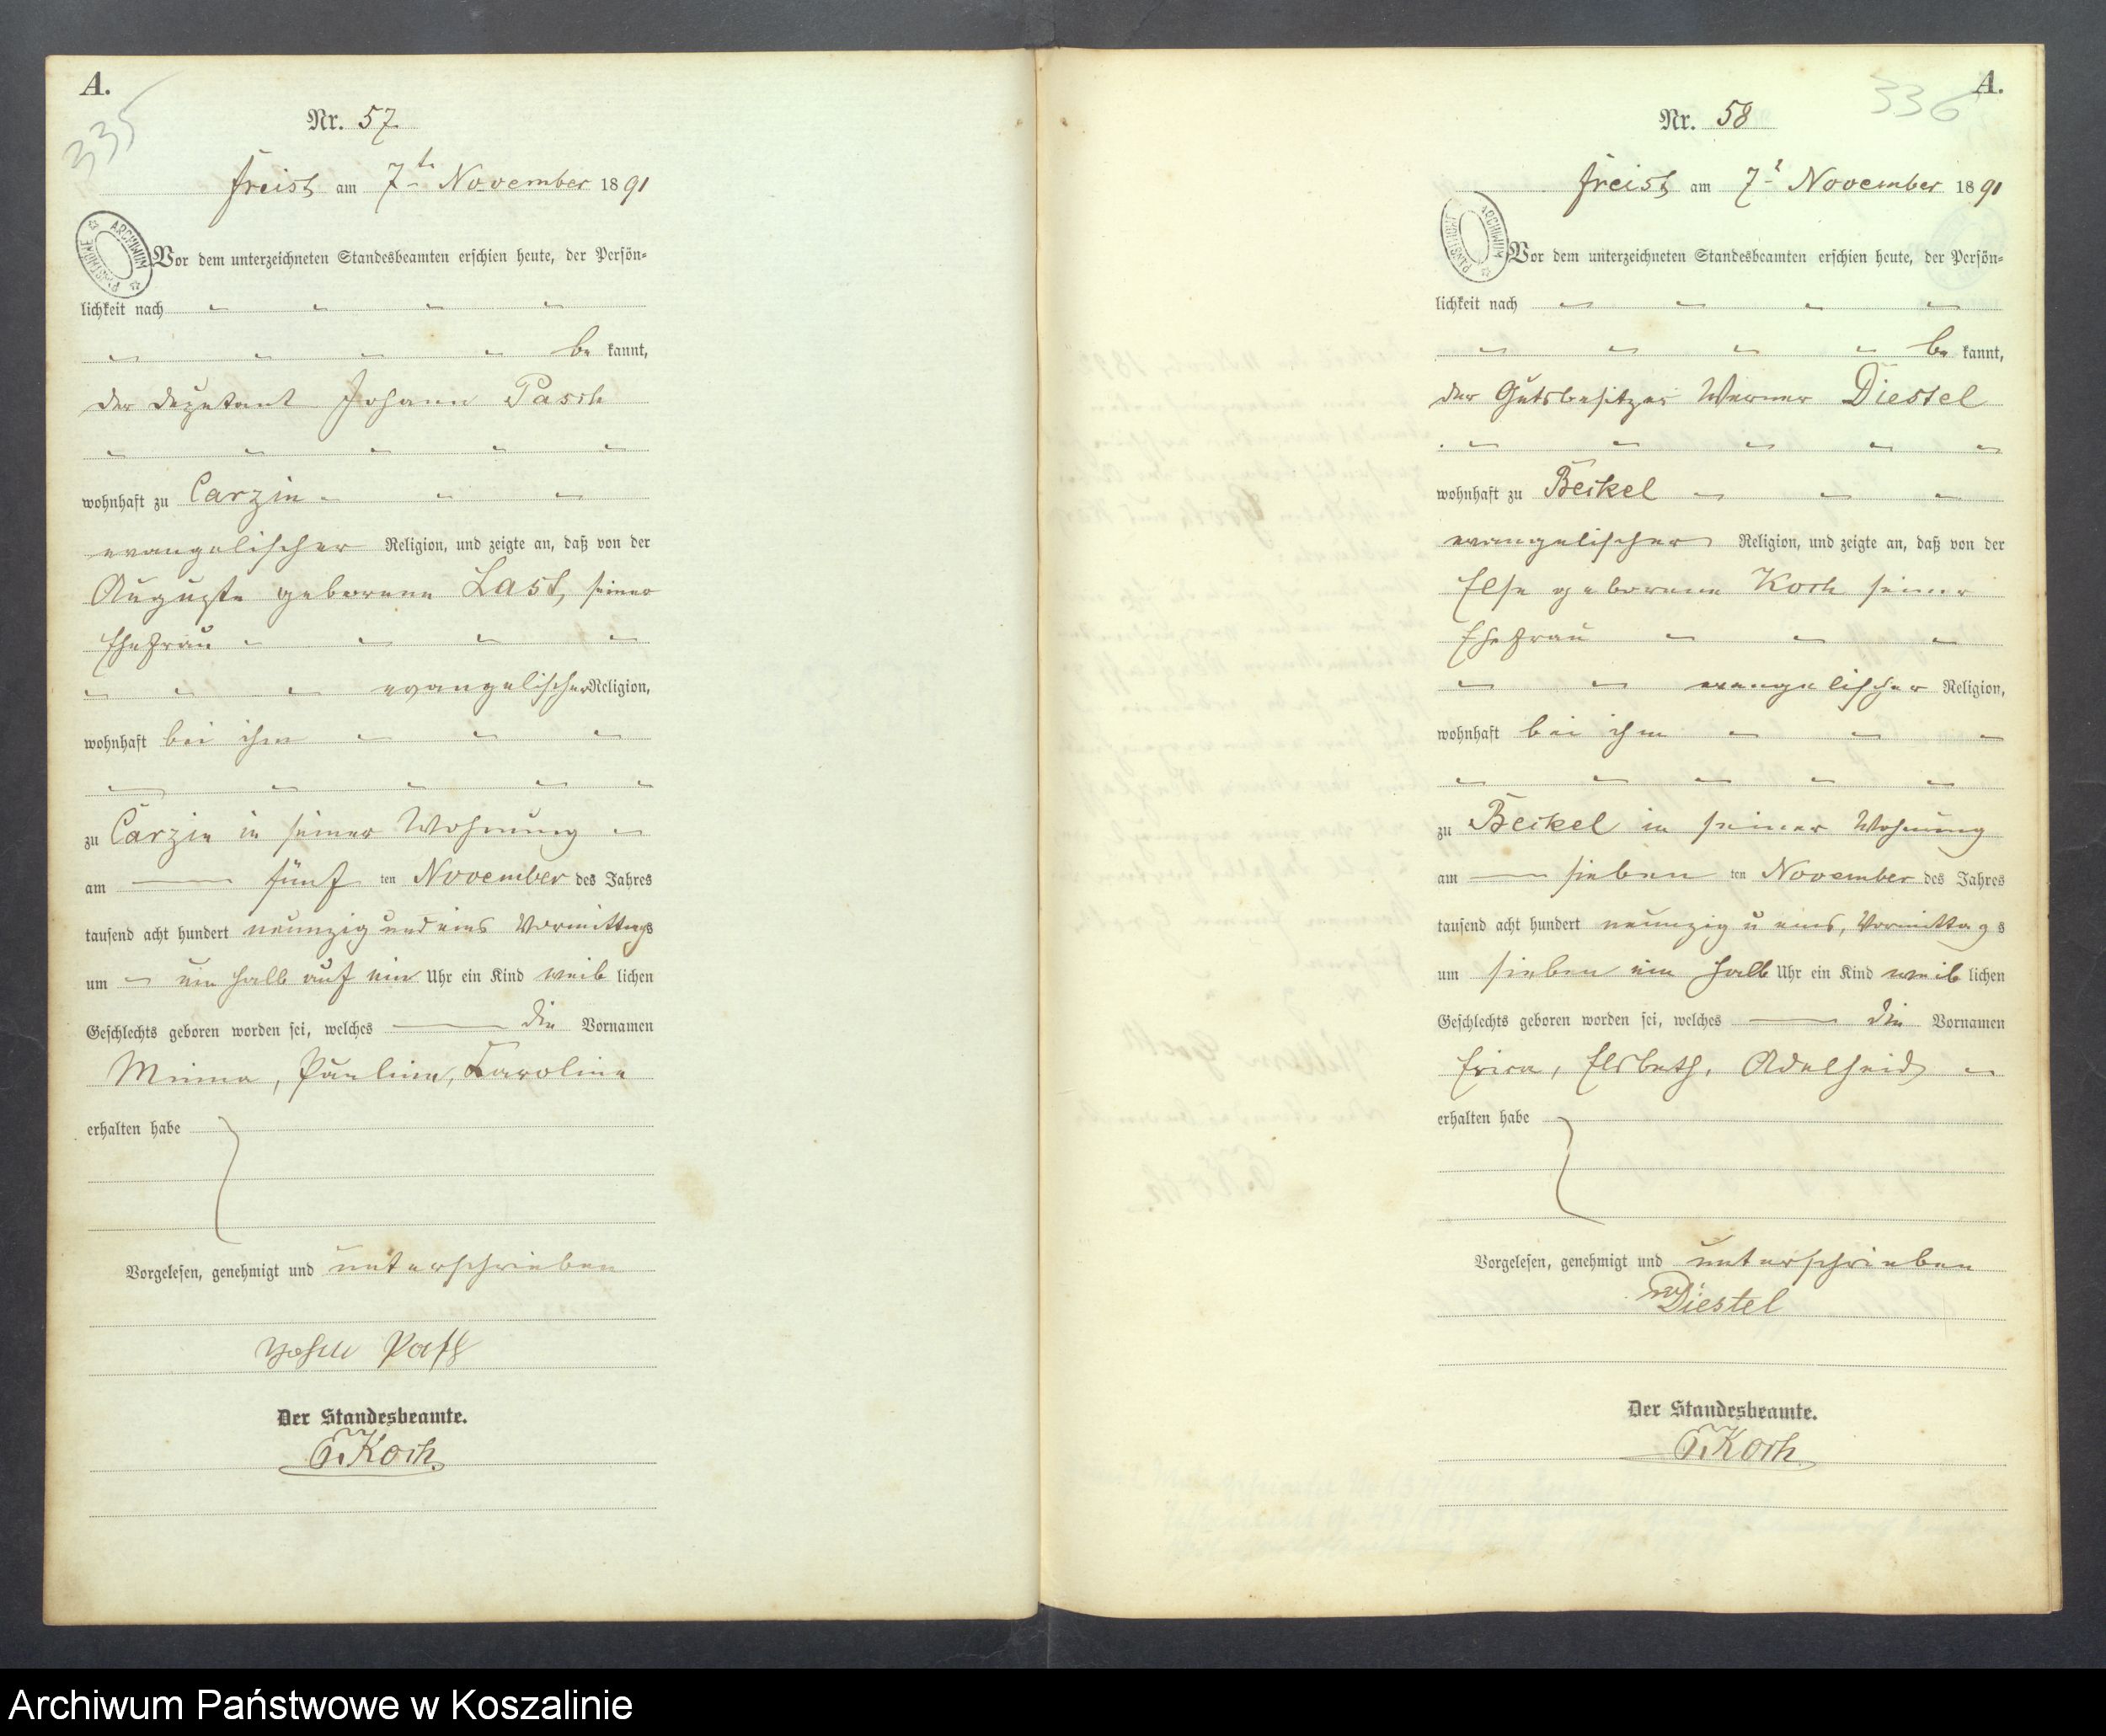 A.
335
Nr. 57.
Freist am 7t. November 1891
ARCHIWUM PAŃSTWOWE
Vor dem unterzeichneten Standesbeamten erschien heute, der Persön-
lichkeit nach
be kannt,
der Deputant Johann Pasch
wohnhaft zu Carzin
evangelischer Religion, und zeigte an, daß von der
Auguste geborene Last, seiner
Ehefrau
evangelischer Religion,
wohnhaft bei ihm
zu Carzin in seiner Wohnung
am fünf ten November des Jahres
tausend acht hundert neunzig und eins Vormittags
um ein halb auf ein Uhr ein Kind weib lichen
Geschlechts geboren worden sei, welches die Vornamen
Minna, Pauline, Karoline
erhalten habe
Vorgelesen, genehmigt und unterschrieben
Pasch
Der Standesbeamte.
Koch
A.
336
Nr. 58
Freist am 7t November 1891
ARCHIWUM PAŃSTWOWE
Vor dem unterzeichneten Standesbeamten erschien heute, der Persön-
lichkeit nach
be kannt,
der Gutsbesitzer Werner Diestel
wohnhaft zu Beikel
evangelischer Religion, und zeigte an, daß von der
Else geborene Koch seiner
Ehefrau
evangelischer Religion,
wohnhaft bei ihm
zu Beikel in seiner Wohnung
am sieben ten November des Jahres
tausend acht hundert neunzig u eins, Vormittags
um sieben ein halb Uhr ein Kind weib lichen
Geschlechts geboren worden sei, welches die Vornamen
Erica, Elsbeth, Adelheid
erhalten habe
Vorgelesen, genehmigt und unterschrieben
W Diestel
Der Standesbeamte.
Koch
Archiwum Państwowe w Koszalinie